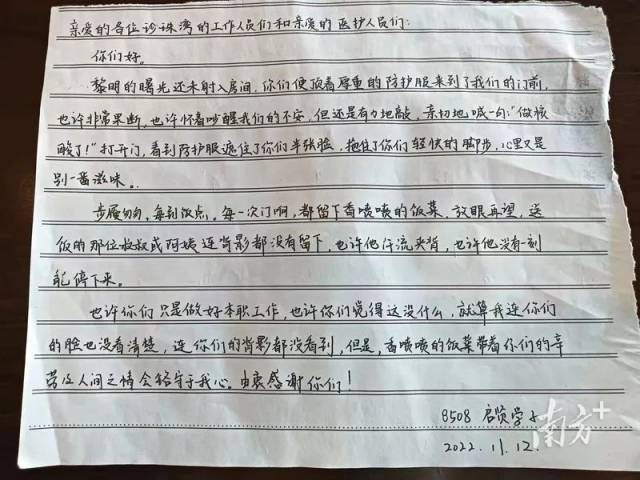 亲爱的各位珍珠湾的工作人员们和亲爱的医护人员们:
你们好。
黎明的曙光还未射入房间,你们便顶着厚重的防护服来到了我们的门前,
也许非常果断,也许怀着吵醒我们的不安,但还是有力地敲,亲切地喊一句:“做核
酸了!”打开门,看到防护服遮住了你们半张脸,拖住了你们轻快的脚步,心里又是
别一番滋味。
步履匆匆,每到饭点,每一次门响,都留下香喷喷的饭菜,放眼再望,送
饭的那位叔叔或阿姨连背影都没有留下,也许他汗流夹背,也许他没有一刻
能停下来。
也许你们只是做好本职工作,也许你们觉得这没什么,就算我连你们
的脸也没看清楚,连你们的背影都没看到,但是,香喷喷的饭菜带着你们的辛
劳及人间之情会铭守于我心。由衷感谢你们!
8508
2022.11.12.
南方+